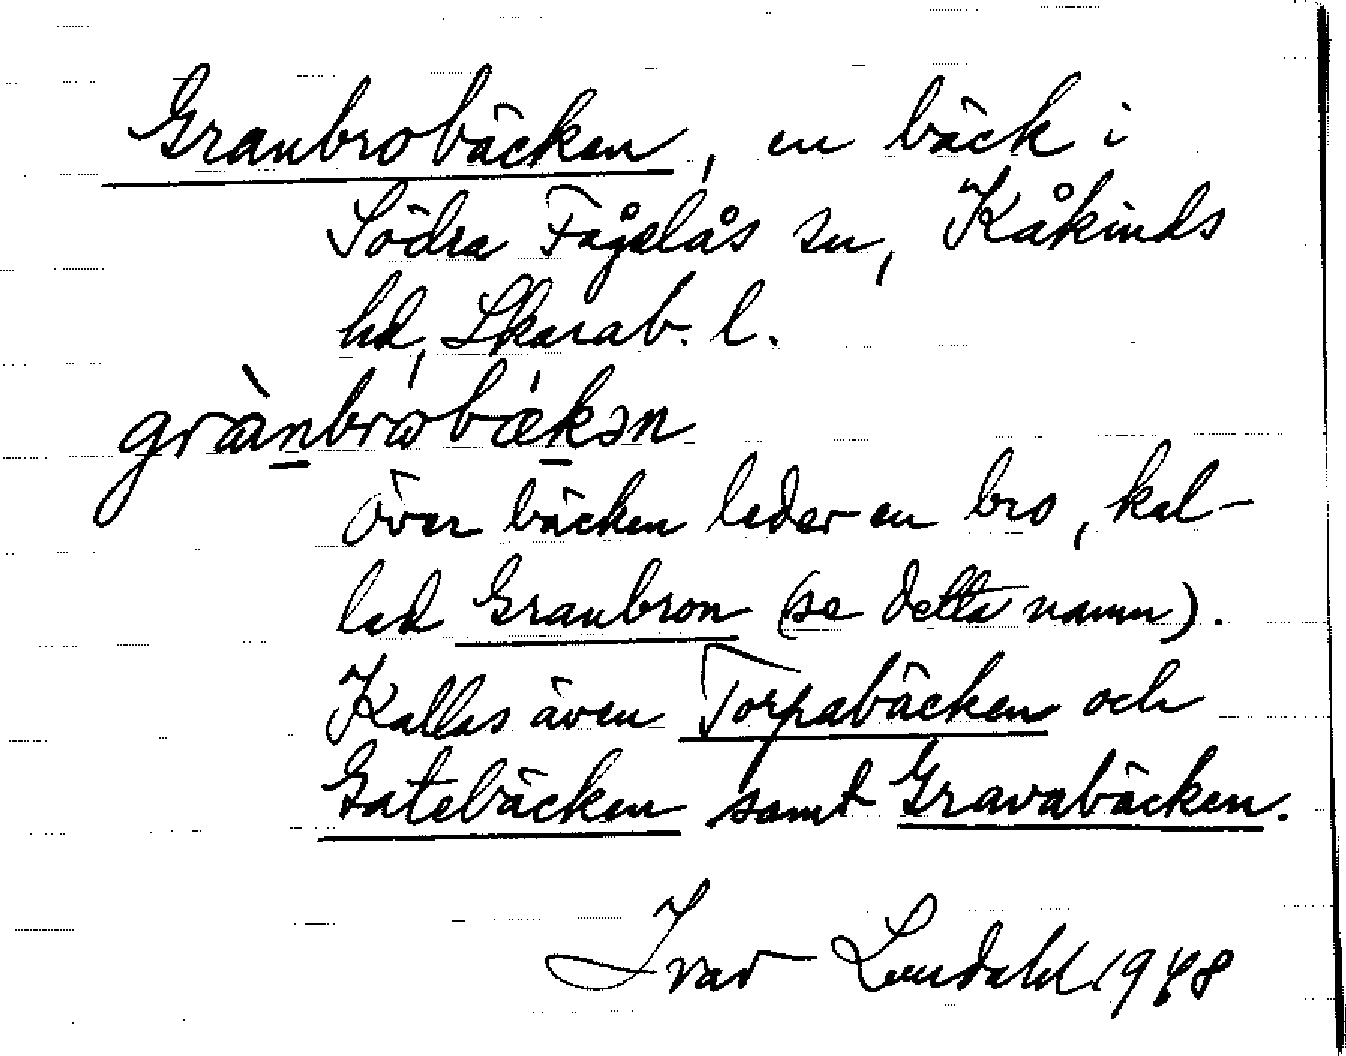 Granbrobäcken, en bäck i
Södra Fågelås sn, Kåkinds
hd, Skarab. l.
grànbrobækən
över bäcken leder en bro, kal-
lad Granbron (se detta namn).
Kallas även Torpabäcken och
Gatebäcken samt Gravabäcken.
Ivar Lundahl 1948